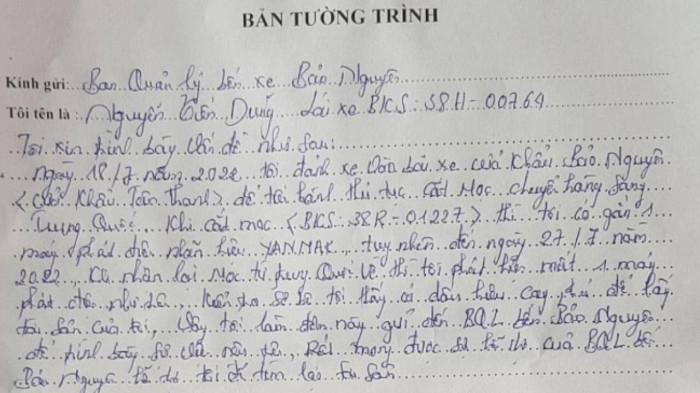 BẢN TƯỜNG TRÌNH
Kính gửi: Ban Quản lý bến xe Bảo Nguyên
Tôi tên là: Nguyễn Tiến Dũng lái xe BKS: 38H-00764
Tôi xin trình bày vấn đề như sau:
Ngày 18/7 năm 2022 tôi đánh xe vào bãi xe cửa khẩu Bảo Nguyên
<cửa khẩu Tân Thanh> để tôi hành thủ tục cắt Mooc chuyển hàng sang
Trung Quốc, khi cắt mooc <BKS: 38R-01227> thì tôi có gắn 1
máy phát điện nhãn hiệu YANMAR, tuy nhiên đến ngày 27/7 năm
2022, khi nhận lại Mooc từ trung Quốc về thì tôi phát hiện mất 1 máy
phát điện như trên, tôi thấy có dấu hiệu cạy phá để lấy
tài sản của tôi, Vậy tôi làm đơn này gửi đến BQL bến Bảo Nguyên
để trình bày sự việc nêu trên, Rất mong được sự hỗ trợ của BQL bến
Bảo Nguyên tôi tìm lại tài sản